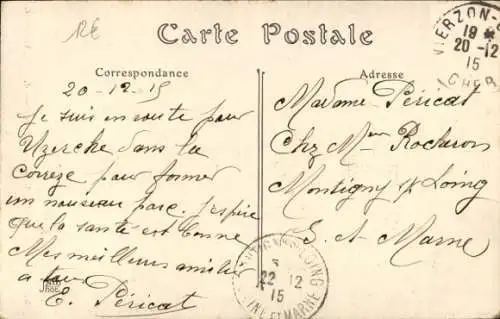 RE
Carte Postale
Correspondance
20-12-15
Je suis en route pour
Uzerche dans la
Corrèze pour former
un nouveau parc. J'espère
que la santé est bonne
Mes meilleures amitiés
a tous
E. Péricat
Adresse
Madame Péricat
Chez Mme Rocheron
Montigny s/ Loing
S. et Marne
VIERZON
19 *
20-12
15
CHER
MONTIGNY-S-LOING
22 12
15
SEINE ET MARNE